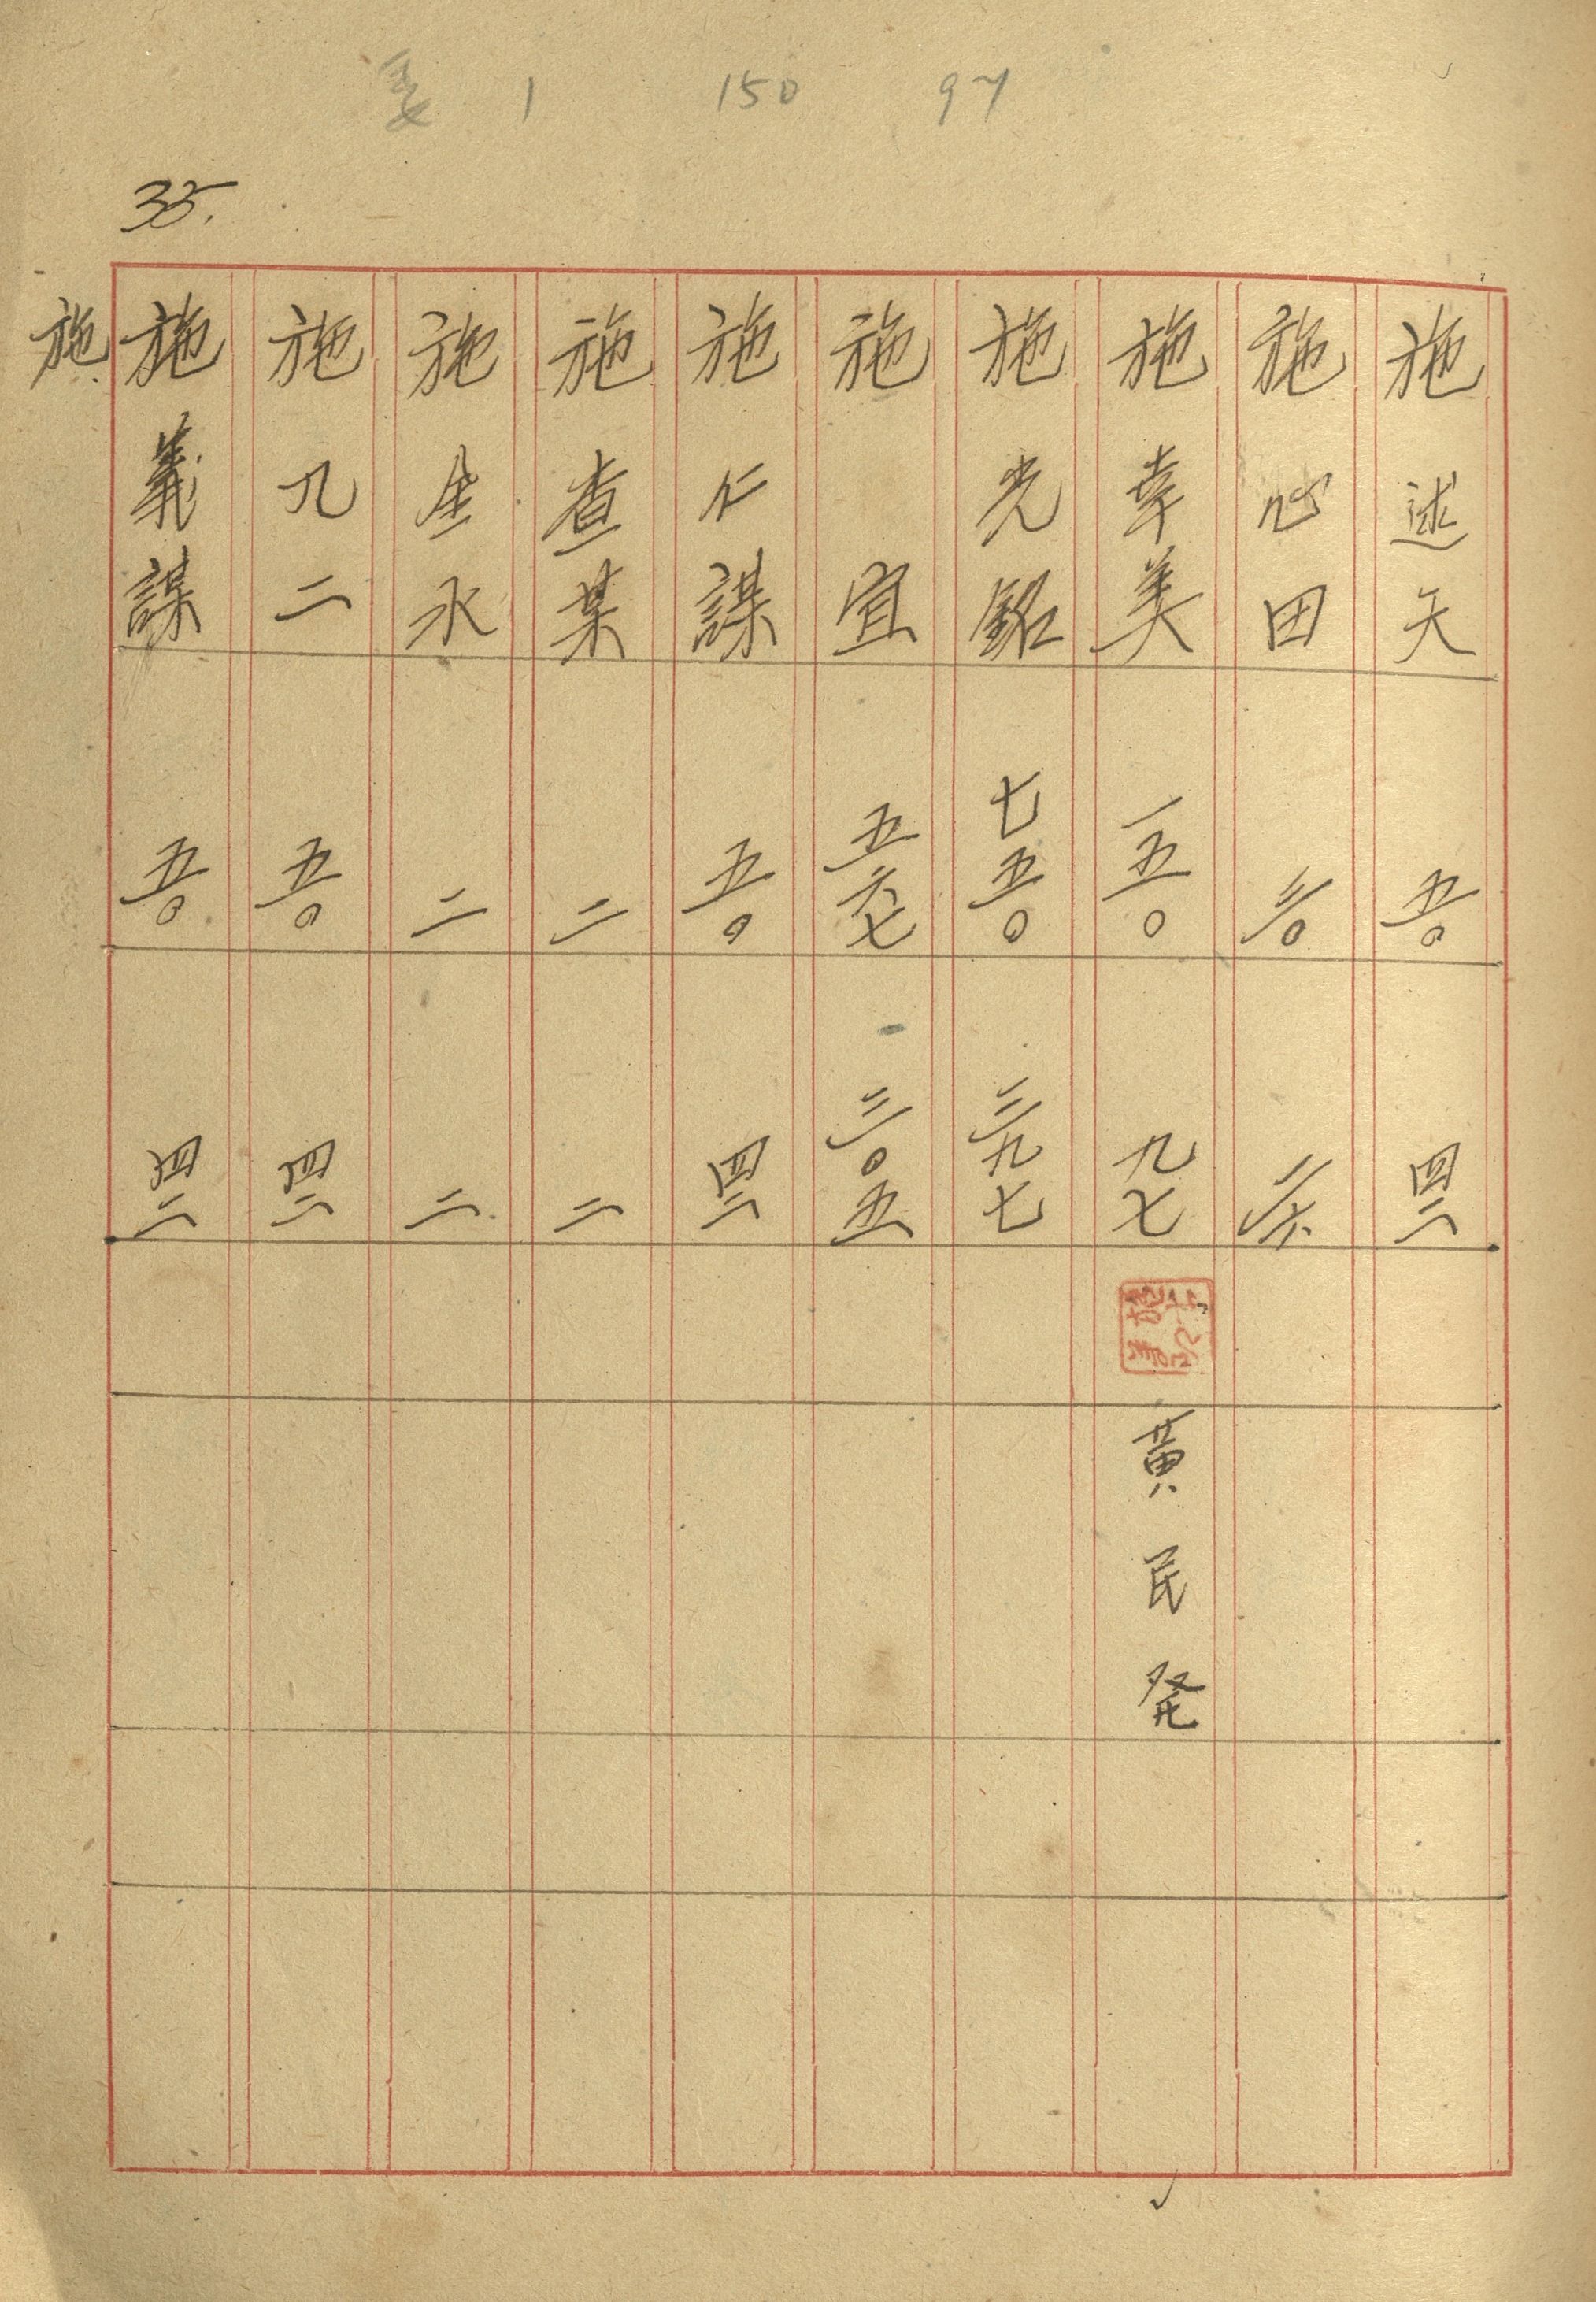 1 150 97
35.
施述天 五〇 四二
施心田 三〇 二六
施幸美 一五〇 九七 黃民発
施光銘 七五〇 三九七
施宜 五六七 三〇五
施仁謀 五〇 四二
施查某 二 二
施水 二 二
施九二 五〇 四二
施義謀 五〇 四二
施